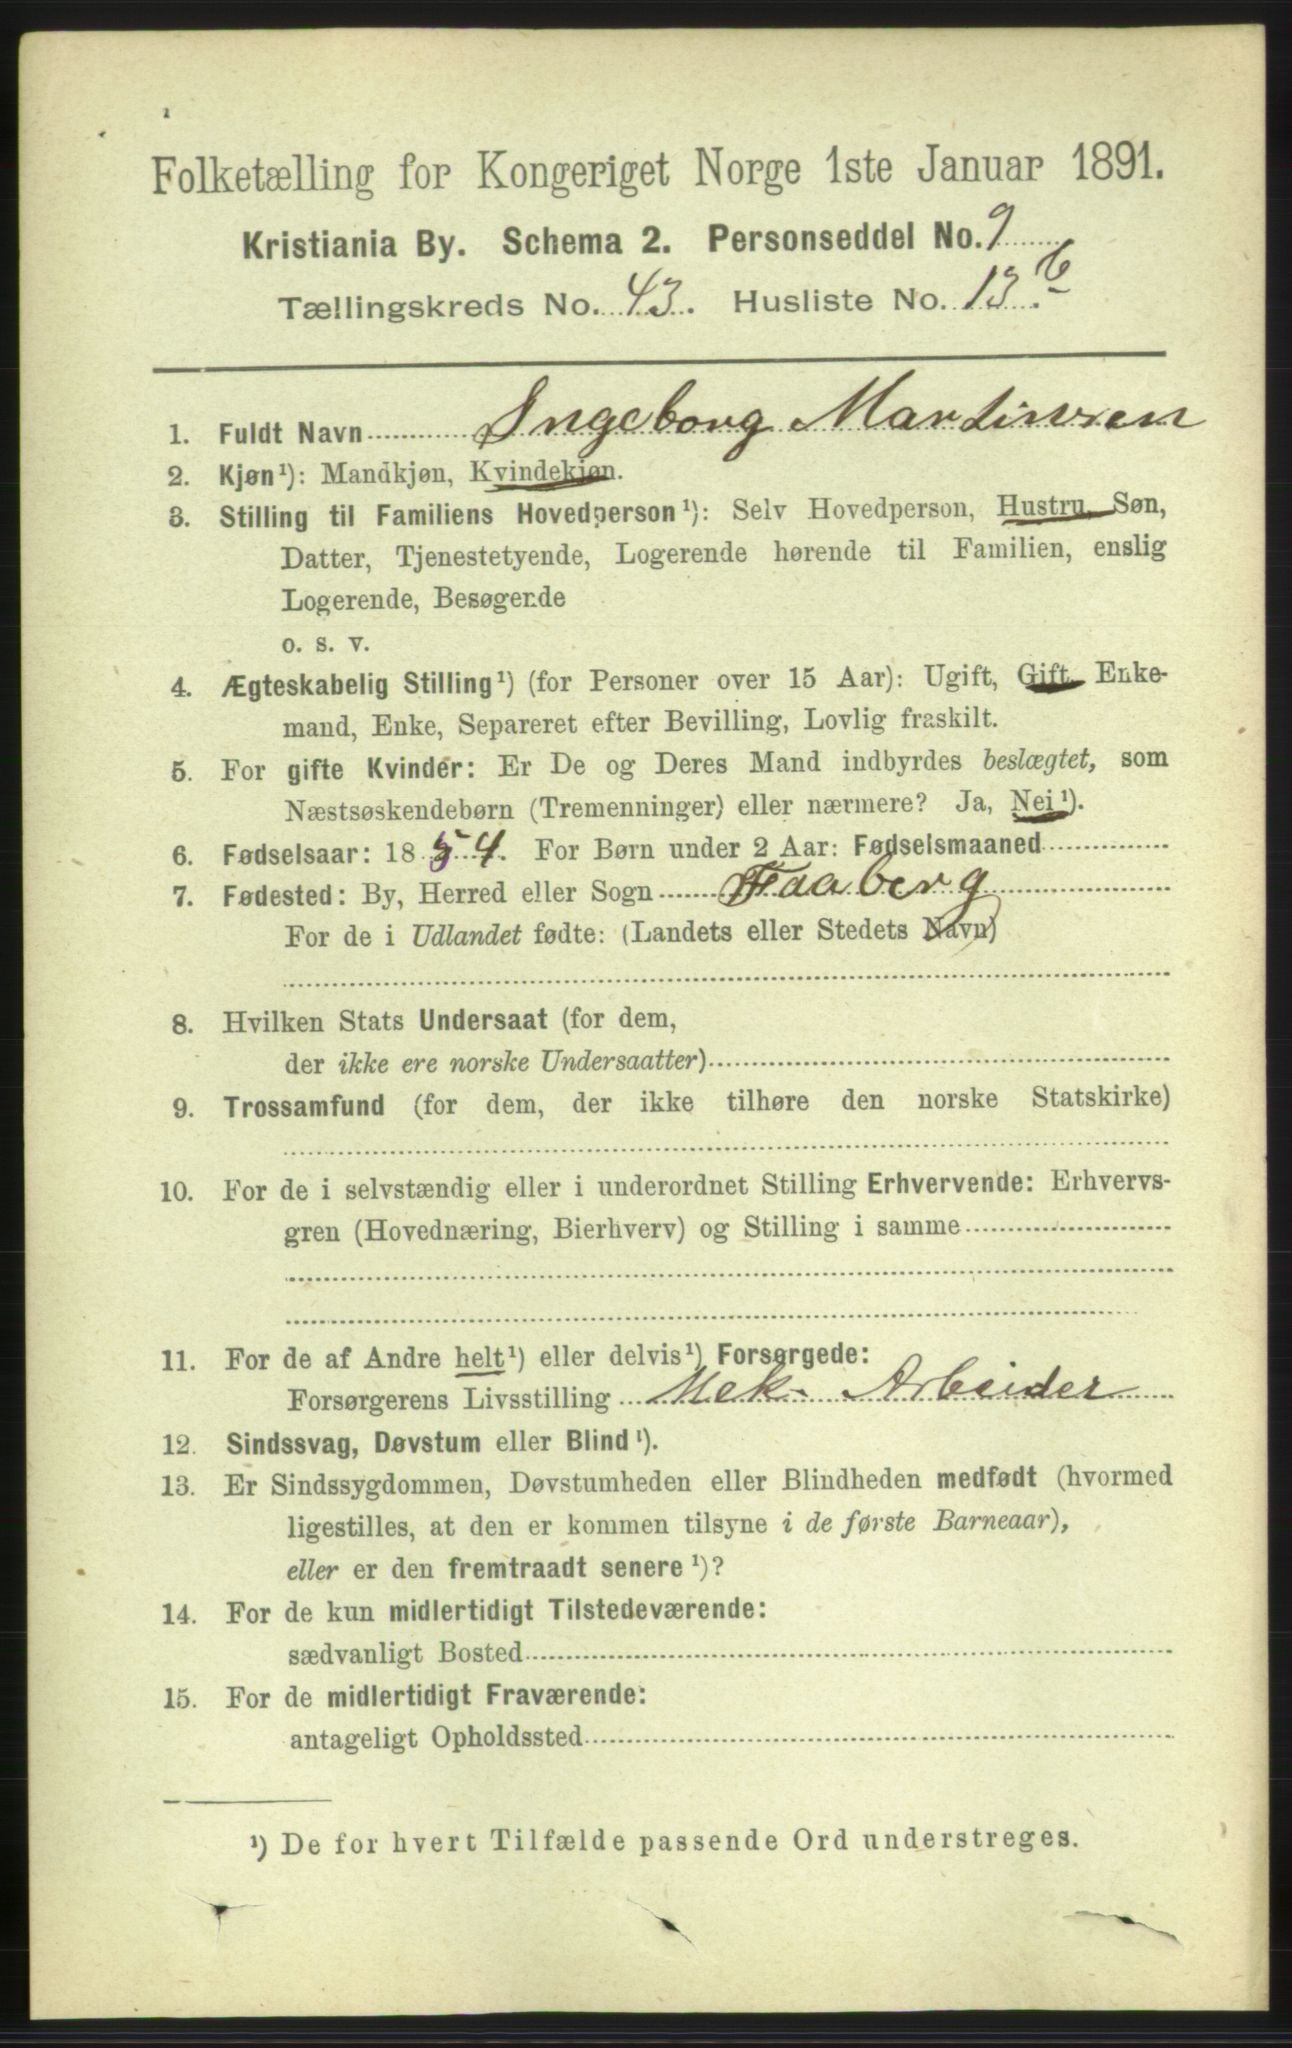 Folketælling for Kongeriget Norge 1ste Januar 1891.
Kristiania By. Schema 2. Personseddel No. 9
Tællingskreds No. 43. Husliste No. 13 b
1. Fuldt Navn Ingeborg Martinsen
2. Kjøn¹): Mandkjøn, Kvindekjøn.
3. Stilling til Familiens Hovedperson¹): Selv Hovedperson, Hustru, Søn,
Datter, Tjenestetyende, Logerende hørende til Familien, enslig
Logerende, Besøgende
o. s. v.
4. Ægteskabelig Stilling¹) (for Personer over 15 Aar): Ugift, Gift, Enke-
mand, Enke, Separeret efter Bevilling, Lovlig fraskilt.
5. For gifte Kvinder: Er De og Deres Mand indbyrdes beslægtet, som
Næstsøskendebørn (Tremenninger) eller nærmere? Ja, Nei¹).
6. Fødselsaar: 1854. For Børn under 2 Aar: Fødselsmaaned
7. Fødested: By, Herred eller Sogn Faaberg
For de i Udlandet fødte: (Landets eller Stedets Navn)
8. Hvilken Stats Undersaat (for dem,
der ikke ere norske Undersaatter)
9. Trossamfund (for dem, der ikke tilhøre den norske Statskirke)
10. For de i selvstændig eller i underordnet Stilling Erhvervende: Erhvervs-
gren (Hovednæring, Bierhverv) og Stilling i samme
11. For de af Andre helt¹) eller delvis¹) Forsørgede:
Forsørgerens Livsstilling Mek. Arbeider
12. Sindssvag, Døvstum eller Blind¹).
13. Er Sindssygdommen, Døvstumheden eller Blindheden medfødt (hvormed
ligestilles, at den er kommen tilsyne i de første Barneaar),
eller er den fremtraadt senere¹)?
14. For de kun midlertidigt Tilstedeværende:
sædvanligt Bosted
15. For de midlertidigt Fraværende:
antageligt Opholdssted
¹) De for hvert Tilfælde passende Ord understreges.